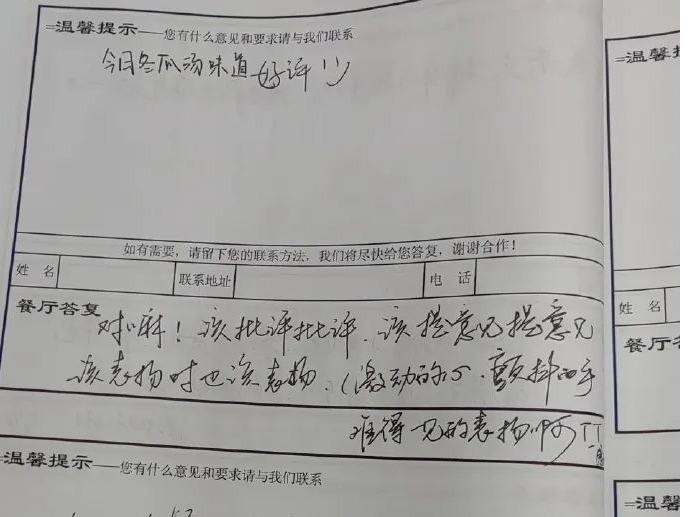 =温馨提示——您有什么意见和要求请与我们联系
今日冬瓜汤味道好评!!
如有需要,请留下您的联系方法,我们将尽快给您答复,谢谢合作!
姓 名 联系地址 电 话
餐厅答复
对嘛!该批评批评.该提意见提意见
该表扬时也该表扬.(激动的心.颤抖的手
难得见的表扬啊TT
温馨提示——您有什么意见和要求请与我们联系
=温馨
姓 名
餐厅
=温馨